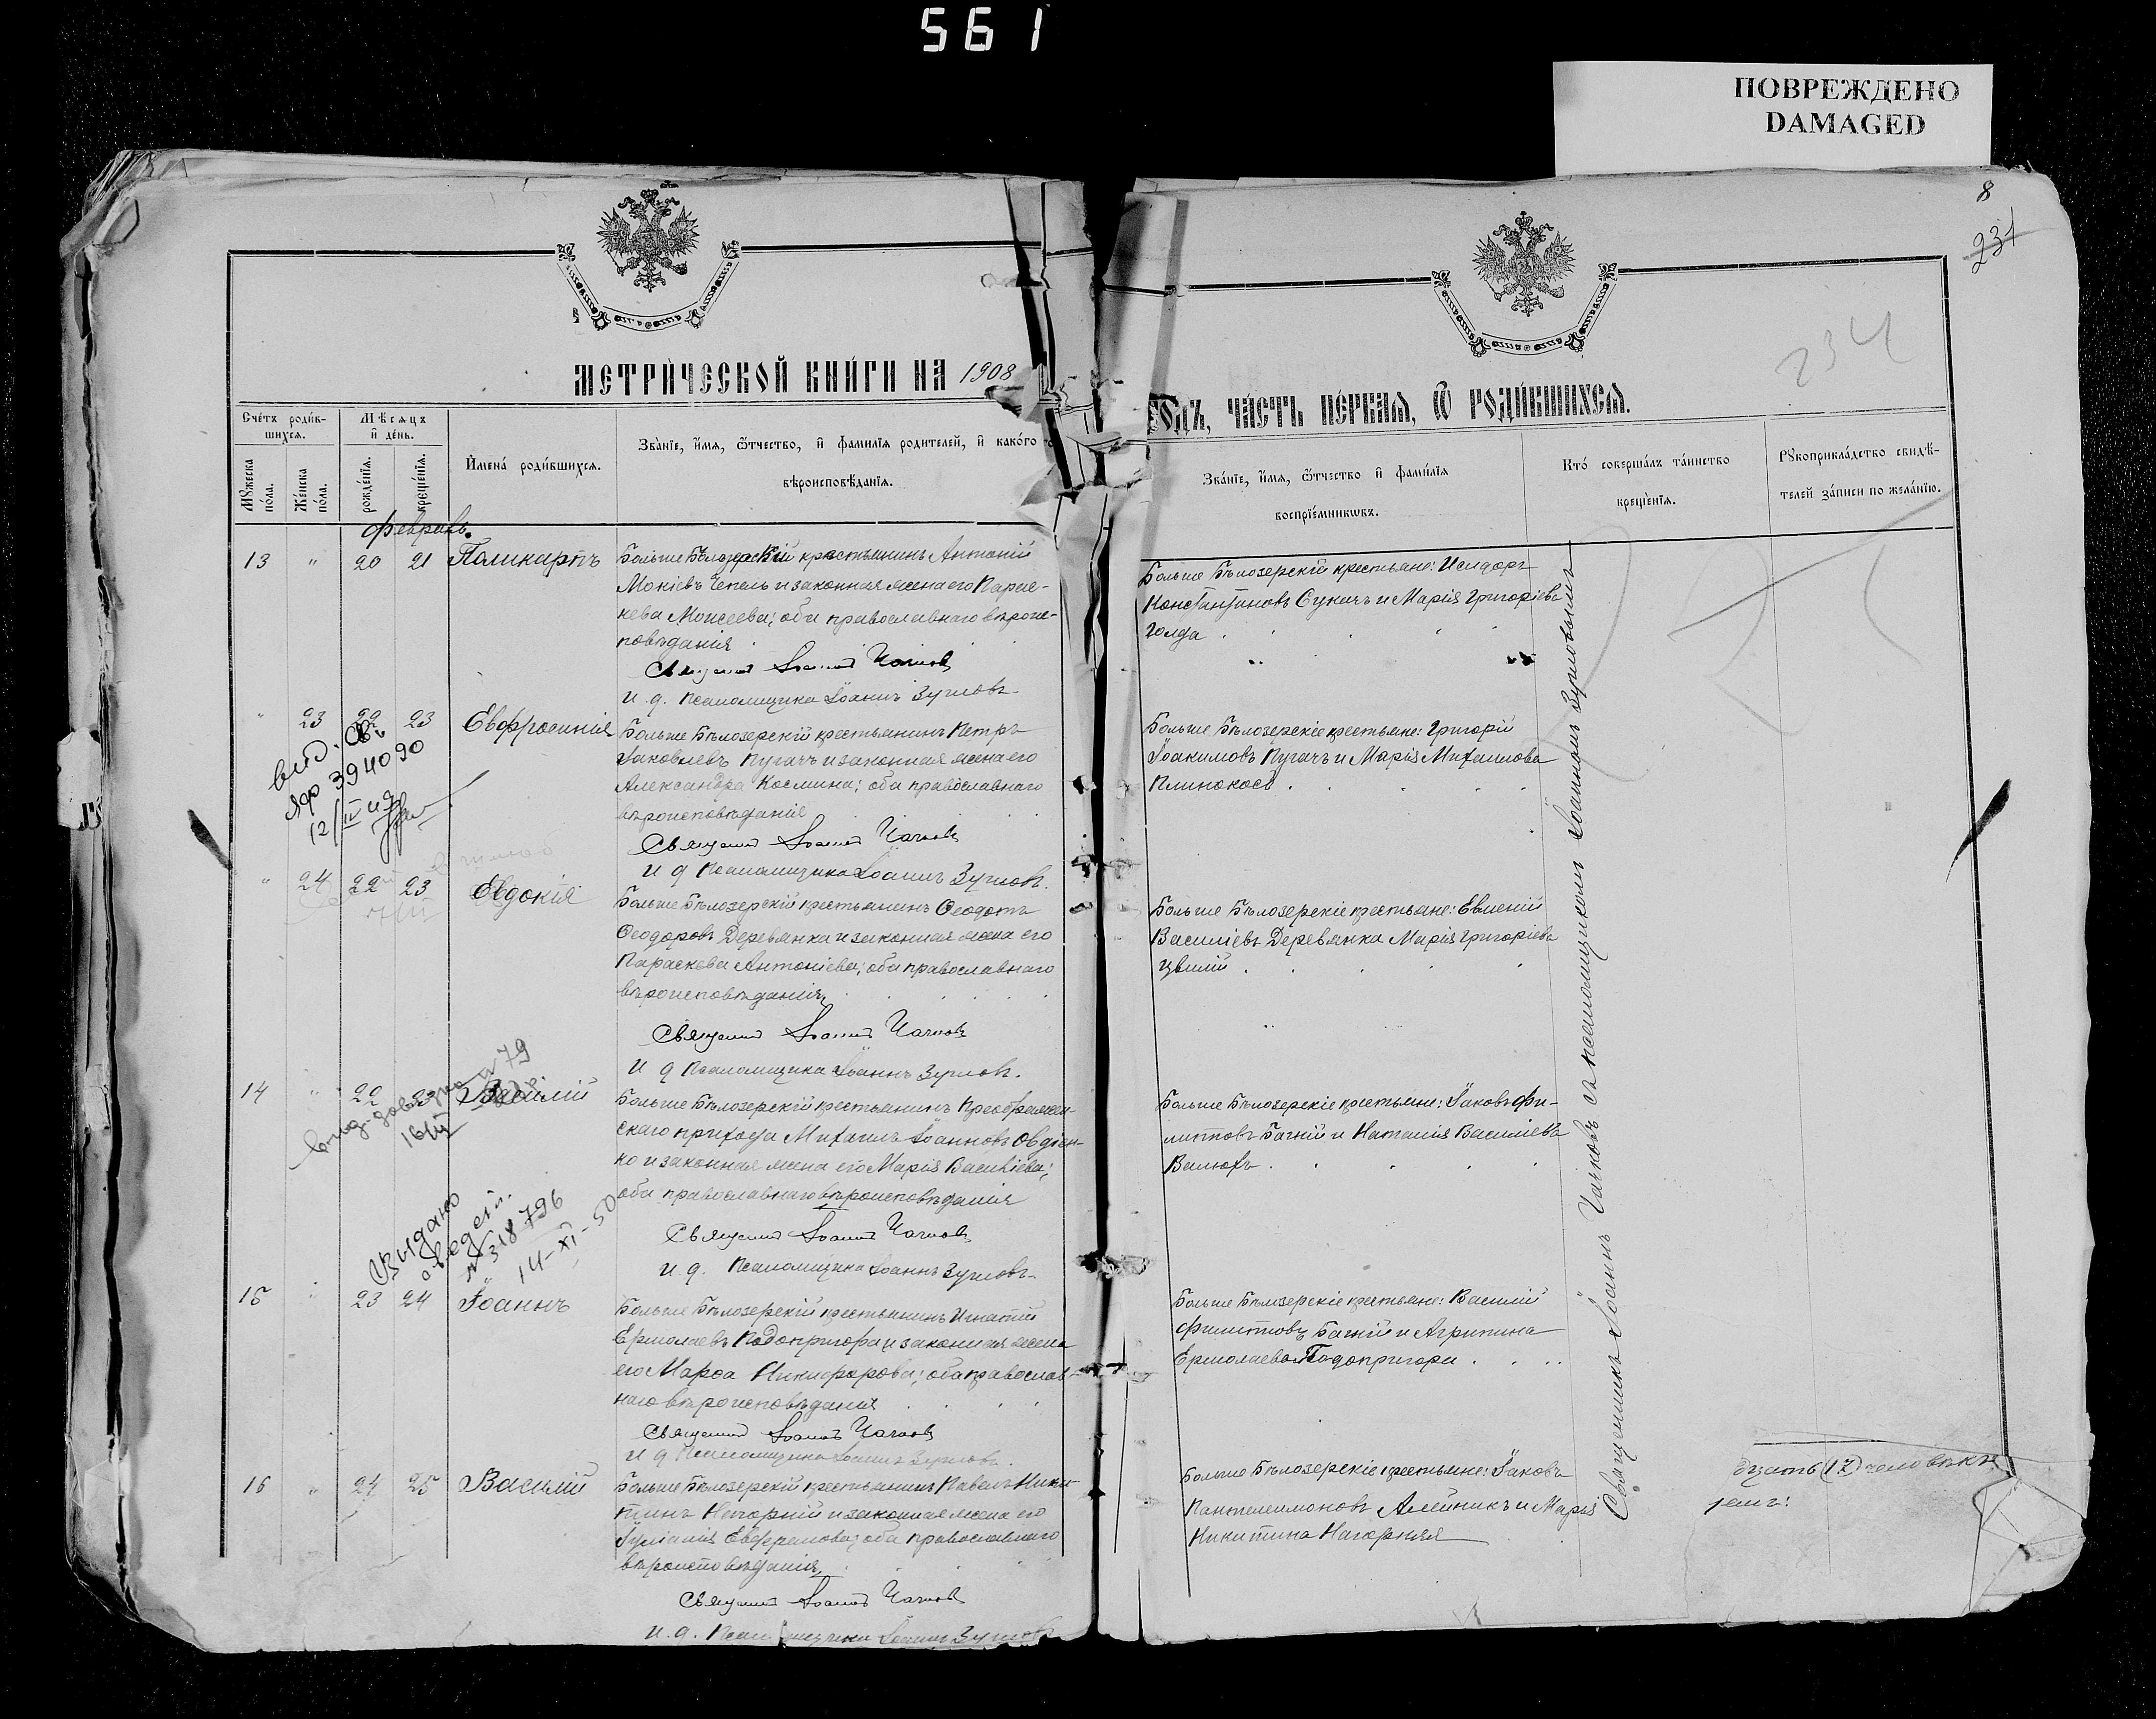 561
ПОВРЕЖДЕНО
DAMAGED
8
231
234
МЕТРИЧЕСКОЙ КНИГИ НА 1908
ГОДЪ, ЧАСТЬ ПЕРВАЯ, Ѿ РОДИВШИХСЯ.
Счетъ родив-
шихся.
Мѣсяцъ
и день.
Мужеска
пола.
Женска
пола.
рожденія.
крещенія.
Имена родившихся.
Званіе, имя, ѿтчество, и фамилія родителей, и какого
вѣроисповѣданія.
Званіе, имя, ѿтчество и фамилія
воспріемниковъ.
Кто совершалъ таинство
крещенія.
Рукоприкладство свидѣ-
телей записи по желанію.
февраль.
13 " 20 21 Поликарпъ
Больше Бѣлозерскій крестьянинъ Антоній
Мокіевъ Чепель и законная жена его Параске-
кева Моисеева; оба православнаго вѣроис-
повѣданія
Священникъ Іоаннъ Чайковъ
И. д. Псаломщика Іоаннъ Зуиловъ.
Больше Бѣлозерскій крестьяне: Исидоръ
Константиновъ Сукачъ и Марія Григоріева
Голда
" 23 22 23 Евфросинія
Больше Бѣлозерскій крестьянинъ Петръ
Іаковлевъ Пугачъ и законная жена его
Александра Космина; оба православнаго
вѣроисповѣданія
Священникъ Іоаннъ Чайковъ
И д Псаломщика Іоаннъ Зуиловъ.
Больше Бѣлозерскіе крестьяне: Григорій
Іоакимовъ Пугачъ и Марія Михаилова
Плинокосъ
вид. Св
ЯФ 394090
12/IV
" 24 22 23 Евдокія
Больше Бѣлозерскій крестьянинъ Ѳеодотъ
Ѳеодоровъ Деревянка и законная жена его
Параскева Антоніева; оба православнаго
вѣроисповѣданія
Священникъ Іоаннъ Чайковъ
И д Псаломщика Іоаннъ Зуиловъ.
Больше Бѣлозерскіе крестьяне: Евменій
Василіевъ Деревянка Марія Григоріева
Цвилій
14 " 22 23 Василій
Больше Бѣлозерскій крестьянинъ Преображен-
скаго прихода Михаилъ Іоанновъ Овдіен-
ко и законная жена его Марія Василіева;
оба православнаго вѣроисповѣданія
Священникъ Іоаннъ Чайковъ
И. д. Псаломщика Іоаннъ Зуиловъ.
Больше Бѣлозерскіе крестьяне: Іаковъ Фи-
липповъ Багній и Наталія Василіева
Валюхъ
79
16/III
Выдано
сведет.
№ 318796
14-XI-50
15 " 23 24 Іоаннъ
Больше Бѣлозерскій крестьянинъ Игнатій
Ермолаевъ Подопригора и законная жена
его Марѳа Никифорова; оба православ-
наго вѣроисповѣданія
Священникъ Іоаннъ Чайковъ
И д Псаломщика Іоаннъ Зуиловъ.
Больше Бѣлозерскіе крестьяне: Василій
Филипповъ Багній и Агрипина
Ермолаева Подопригора
16 " 24 25 Василій
Больше Бѣлозерскій крестьянинъ Павелъ Ники-
тинъ Нагорній и законная жена его
Іуліанія Евфремова; оба православнаго
вѣроисповѣданія
Священникъ Іоаннъ Чайковъ
И. д. Псаломщика Іоаннъ Зуиловъ
Больше Бѣлозерскіе крестьяне: Іаковъ
Пантелеимоновъ Алейникъ и Марія
Никитина Нагорняя
Священникъ Іоаннъ Чайковъ съ псаломщикомъ Іоанномъ Зуиловымъ
дцать (17) человѣкъ